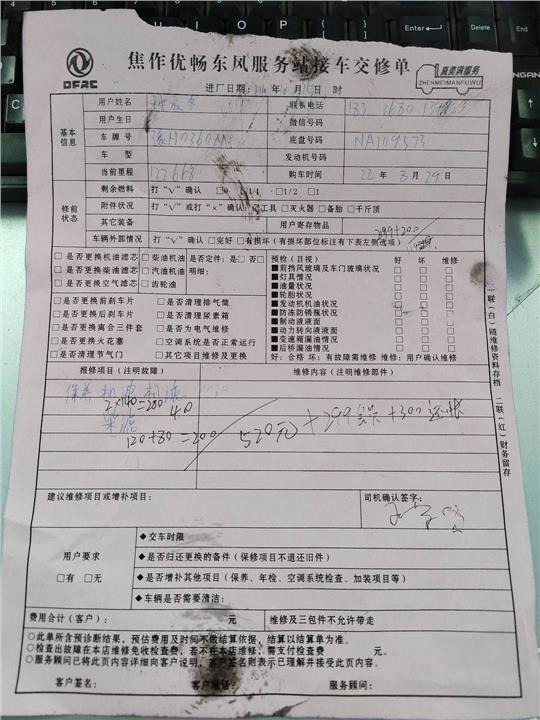 DFAC
焦作优畅东风服务站接车交修单
真美满服务
ZHENMEIMANFUWU
进厂日期: 年 月 日 时
基本信息
用户姓名 联系电话 183
用户生日 微信号码
车牌号 豫H0360M 底盘号码 NA109573
车型 发动机号码
当前里程 127668 购车时间 22 年 8 月 29 日
修前状态
剩余燃料 打“√”确认 □0 □1/4 □1/2 □1
附件状况 打“√”或打“×”确认:□工具 □灭火器 □备胎 □千斤顶
其它装备 用户寄存物品
299+200
车辆外部情况 打“√”确认 □完好 □有损坏(有损坏部位标注有下表左侧选项)
□是否更换机油滤芯 □柴油机油 是否定件:是□否□
□是否更换柴油滤芯 □汽油机油 明细:
□是否更换空气滤芯 □齿轮油
□是否更换前刹车片 □是否清理排气筒
□是否更换后刹车片 □是否清理尿素箱
□是否更换离合三件套 □是否为电气维修
□是否更换火花塞 □空调系统是否正常运行
□是否清理节气门 □其它项目维修及更换
预检(目视) 好 坏 维修
■前挡风玻璃及车门玻璃状况 □ □ □
■灯具情况 □ □ □
■油量状况 □ □ □
■轮胎状况 □ □ □
■发动机机油状况 □ □ □
■防冻防锈瓶状况 □ □ □
■制动液液面 □ □ □
■动力转向液液面 □ □ □
■变速箱漏油情况 □ □ □
■后桥漏油情况 □ □ □
好:合格 坏:有故障需维修 维修:用户确认维修
报修项目(注明故障) 维修内容(注明维修部件)
保养 机滤 机油
2×140=280 40
柴滤
120+80=200
520元+299 +300还帐
一联(白)随维修资料存档 二联(红)财务留存
建议维修项目或增补项目: 司机确认签字:
用户要求
□有 □无
◆交车时限
◆是否归还更换的备件(保修项目不退还旧件)
◆是否增补其他项目(保养、年检、空调系统检查、加装项目等)
◆车辆是否需要清洁:
费用合计(客户): 元 维修及三包件不允许带走
○此单所含预诊断结果,预估费用及时间不做结算依据,结算以结算单为准。
○检查出故障在本店维修免收检查费,若不在本店维修,需支付检查费 元。
○服务顾问已将此页内容详细向客户说明,客户签名则表示已理解并接受此页内容。
客户签名: 客户电话: 服务顾问: